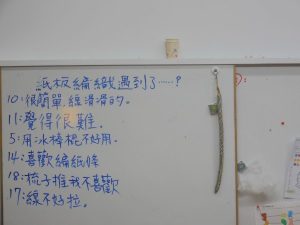 紙板編織遇到了……?
10:很簡單,線滑滑的。
11:覺得很難.
5:用冰棒棍不好用.
14:喜歡編紙條
18:梳子推我不喜歡
17:線不好拉。